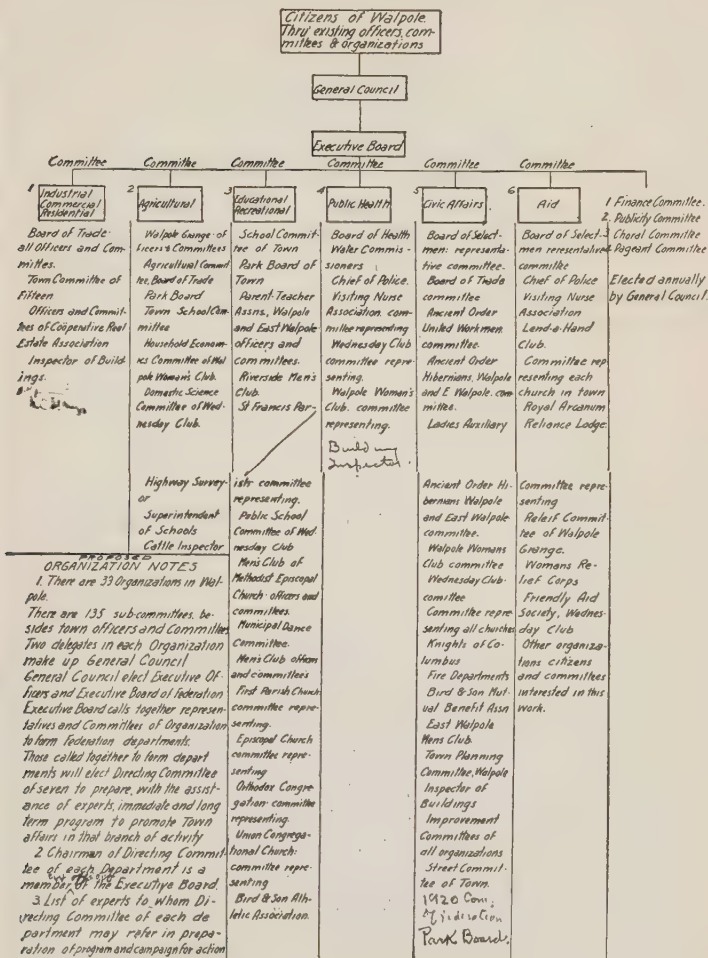 Citizens of Walpole.
Thru' existing officers, com-
mittees & organizations
General Council
Executive Board
Committee Committee Committee Committee Committee Committee
1 Industrial
Commercial
Residential
Board of Trade-
all Officers and Com-
mittes.
Town Committee of
Fifteen
Officers and Commit-
tees of Coöperative Real
Estate Association
Inspector of Build-
ings.
2 Agricultural
Walpole Grange-of
ficers & Committees
Agricultural Commit
tee, Board of Trade
Park Board
Town School Com-
mittee
Household Econom-
ics Committee of Wal
pole Woman's Club.
Domestic Science
Committee of Wed-
nesday Club.
Highway Survey-
or
Superintendent
of Schools
Cattle Inspector
3 Educational
Recreational
School Commit-
tee of Town
Park Board of
Town
Parent-Teacher
Assns, Walpole
and East Walpole
officers and
committees.
Riverside Men's
Club.
St Francis Par-
ish: committee
representing.
Public School
Committee of Wed-
nesday Club
Men's Club of
Methodist Episcopal
Church-officers and
committees.
Municipal Dance
Committee.
Men's Club officers
and committees
First Parish Church
committee repre-
senting.
Episcopal Church
committee repre-
senting
Orthodox Congre-
gation-committee
representing.
Union Congrega-
tional Church:
committee repre-
senting
Bird & Son Ath-
letic Association.
4 Public Health
Board of Health
Water Commis-
sioners
Chief of Police.
Visiting Nurse
Association, com-
mittee representing
Wednesday Club
committee repre-
senting.
Walpole Woman's
Club. committee
representing.
Building
Inspector.
5 Civic Affairs
Board of Select-
men: representa-
tive committee-
Board of Trade
committee
Ancient Order
United Workmen
committee.
Ancient Order
Hibernians, Walpole
and E Walpole. com
mittee.
Ladies Auxiliary
Ancient Order Hi-
bernians Walpole
and East Walpole
committee.
Walpole Womans
Club committee
Wednesday Club-
comittee
Committee repre-
senting all churches
Knights of Co-
lumbus
Fire Departments
Bird & Son Mut-
ual Benefit Assn
East Walpole
Mens Club.
Town Planning
Committee, Walpole
Inspector of
Buildings
Improvement
Committees of
all organizations
Street Commit-
tee of Town.
1920 Com.
of Federation
Park Board.
6 Aid
Board of Select-
men resentative
committee
Chief of Police
Visiting Nurse
Association
Lend-a-Hand
Club.
Committee rep
resenting each
church in town
Royal Arcanum
Reliance Lodge.
Committee repre-
senting
Releif Commit-
tee of Walpole
Grange.
Womans Re-
lief Corps
Friendly Aid
Society, Wednes-
day Club
Other organiza-
tions citizens
and committees
interested in this
work.
1 Finance Committee.
2. Publicity Committee
3 Choral Committee
4 Pageant Committee
Elected annually
by General Council.
PROPOSED
ORGANIZATION NOTES
1. There are 39 Organizations in Wal-
pole.
There are 135 sub-committees, be-
sides town officers and Committees
Two delegates in each Organization
make up General Council
General Council elect Executive Of-
ficers and Executive Board of Federation
Executive Board calls together represen-
tatives and Committees of Organization
to form Federation departments.
Those called together to form depart
ments will elect Directing Committee
of seven to prepare, with the assist-
ance of experts, immediate and long
term program to promote Town
affairs in that branch of activity
2 Chairman of Directing Commit-
tee of each Department is a
member of the Executive Board.
3. List of experts to whom Di-
recting Committee of each de
partment may refer in prepa-
ration of program and campaign for action